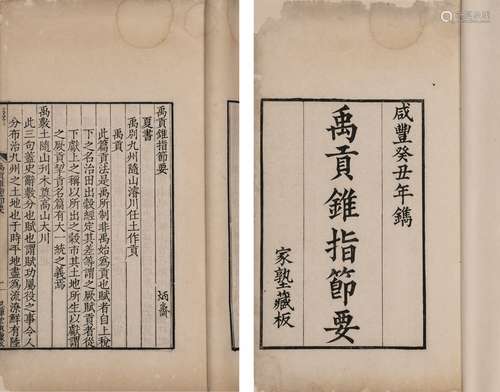 咸豐癸丑年鐫
禹貢錐指節要
家塾藏板
禹貢錐指節要
夏書
禹別九州隨山濬川任土作貢
禹貢
此篇貢法是禹所制非禹始為貢也賦者自上稅
下之名治田出穀經定其差等謂之厥賦貢者從
下獻上之稱以所出之穀市其土地所生以獻謂
之厥貢挈貢名篇有大一統之義焉
禹敷土隨山刊木奠高山大川
此三句蓋史辭敷分也賦功屬役之事令人
分布治九州之土地也于時平地盡為流潦鮮有陸